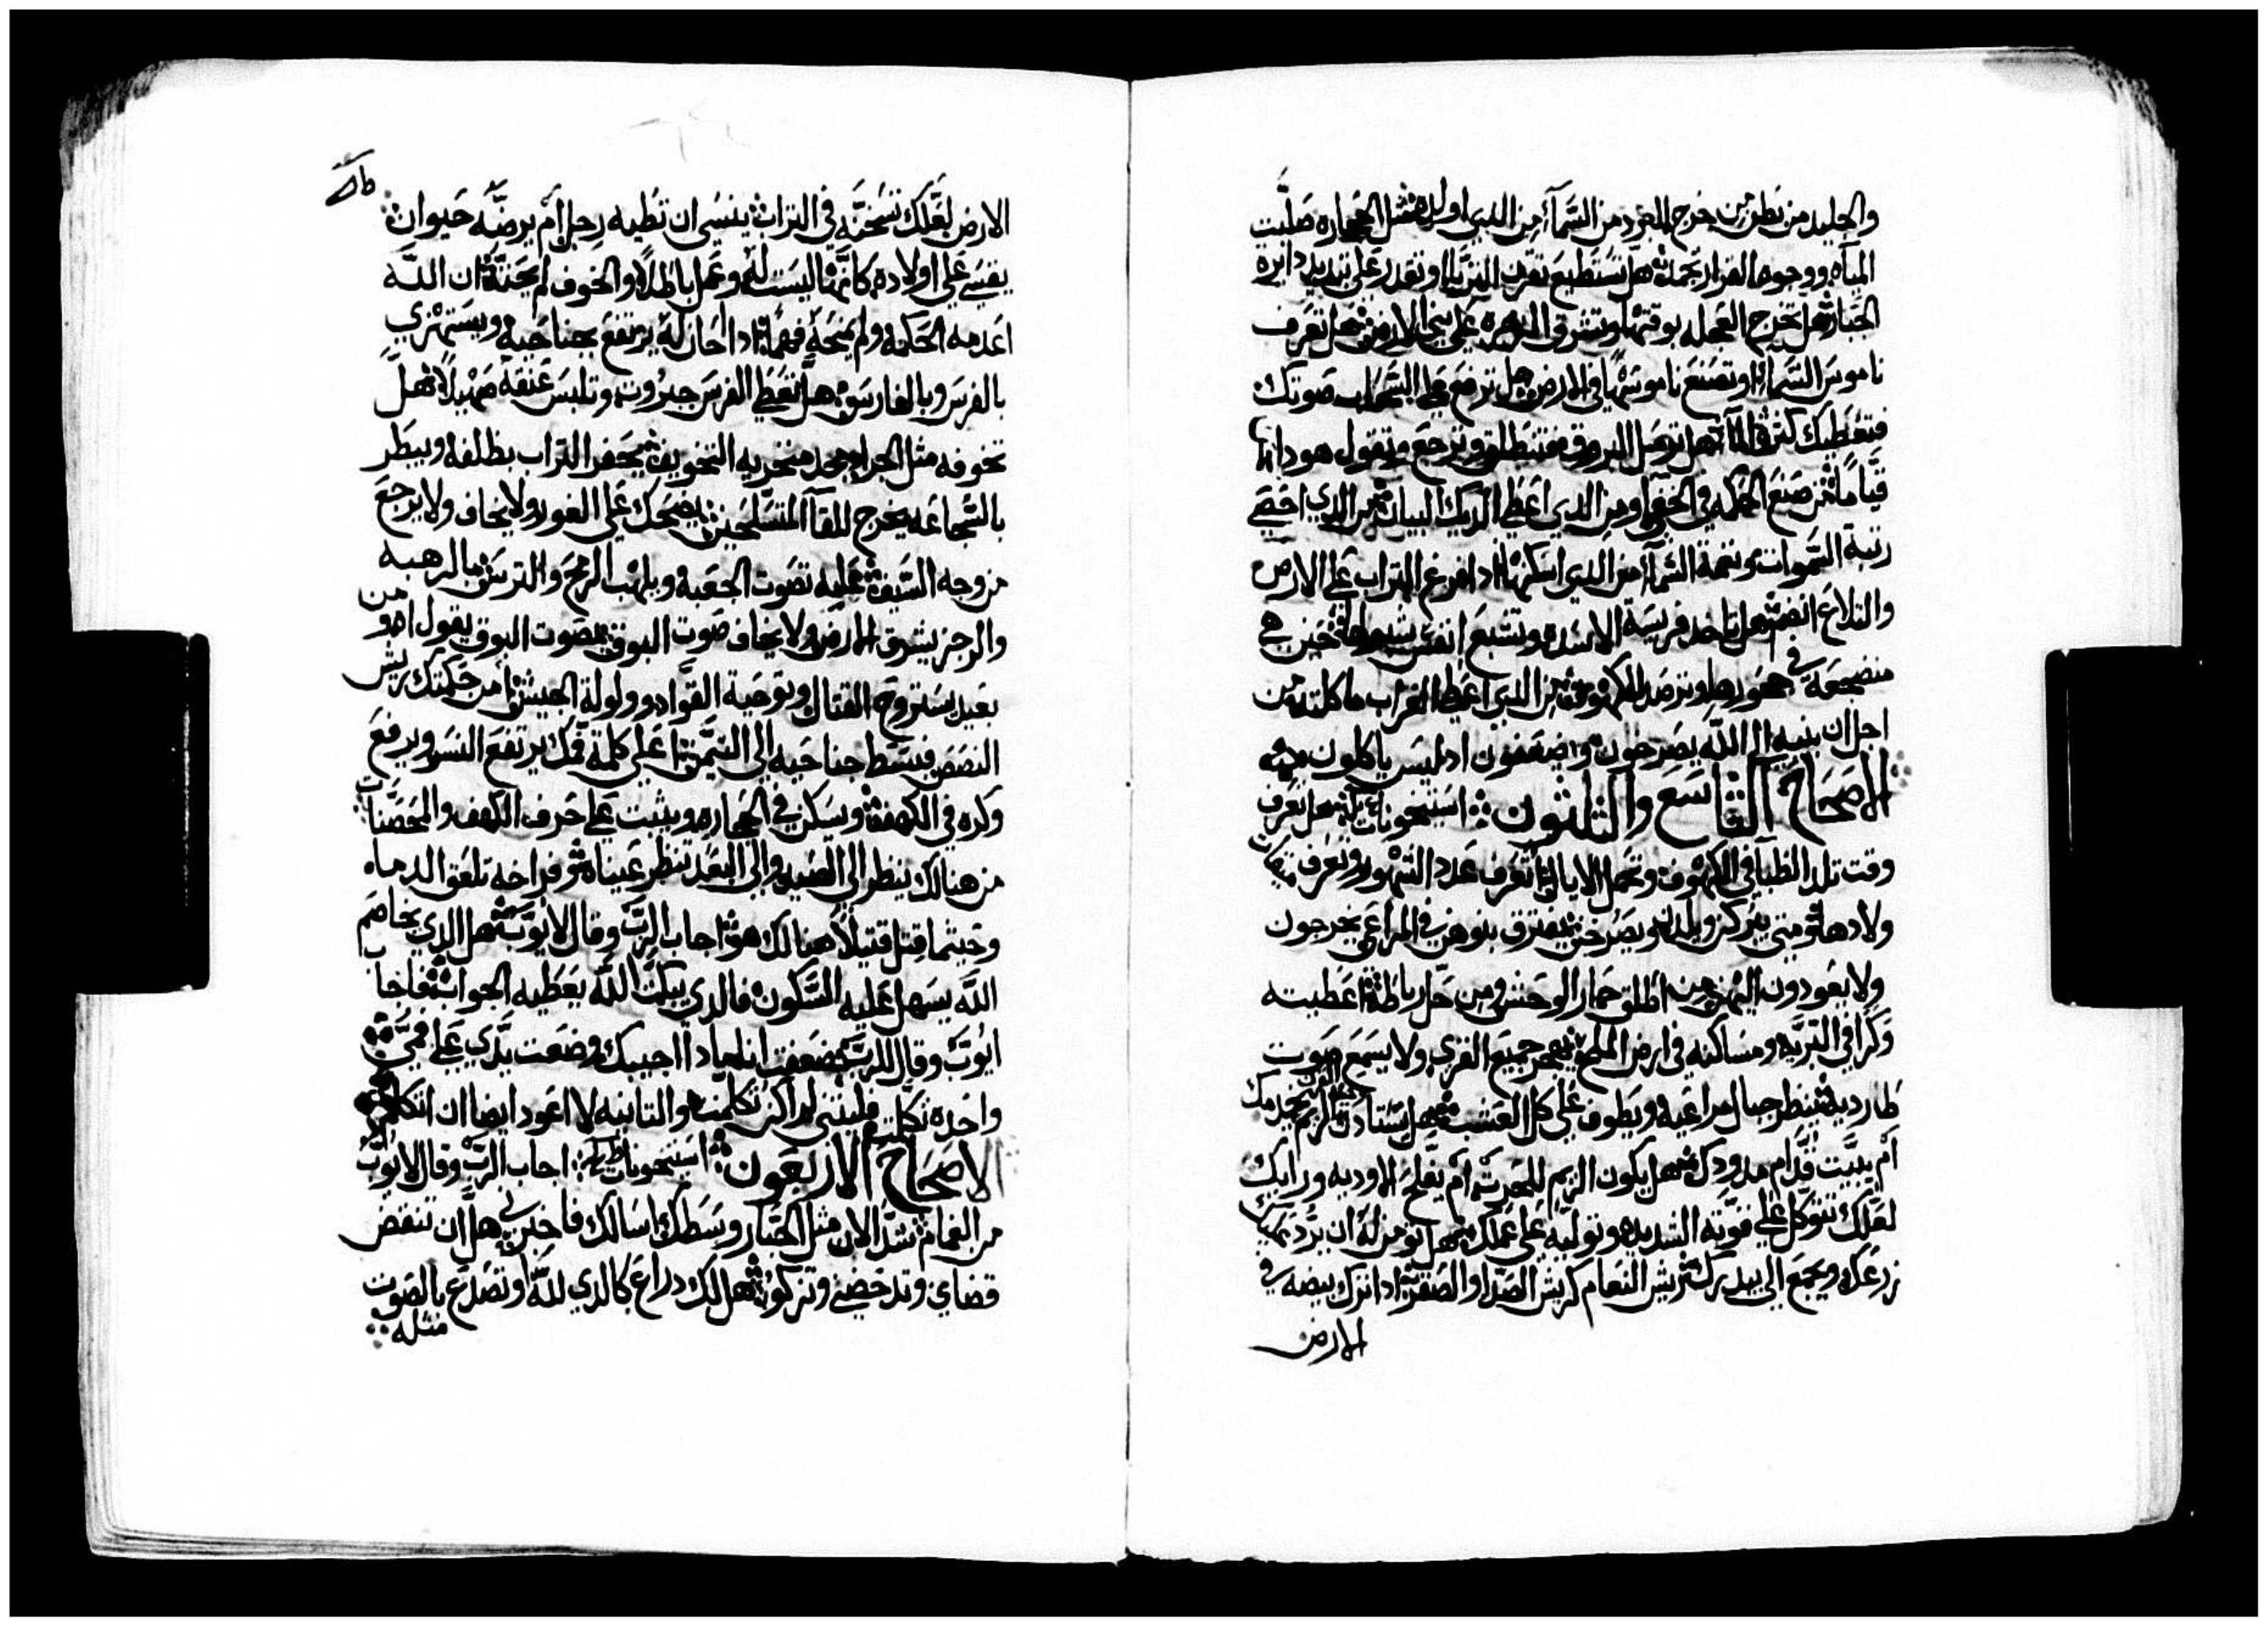 والجليد من بطن من خرج البرد من السمآء من الدي اولده مثل الحجاره صلبت
المياه ووجوه القرار تجمدت هل تستطيع تقرن الثريا او تقدر على تبديد دايره
الجبار هل تخرج العجله بوقتها وتشرق الزهره على بني الارض هل تعرف
ناموس السمآء او تصنع ناموسها في الارض هل ترفع على السحاب صوتك
فتغطيك كثرة المآء هل ترسل البروق فتنطلق وترجع وتقول هودانا
قياما من صنع الحكمه في الخفا ومن الدي اعطا الديك البيان من الدي احصى
رتبة السموات ونغمة السمآء من الدي اسكنها ادا افرغ التراب على الارض
والتلاع انضمت هل تاخد فريسة الاسده وتشبع انفس شبولها حين هي
منضجعه في حجورها وترصد الكهوف من الدي اعطا الغراب ماكلته من
اجل ان بنيه الى الله يصرخون ويضعفون اد ليس ياكلون
الاصحاح التاسع والثلثون استيخونات هل تعرف
وقت تلد الظبا في الكهوف وتحمل الايايل تعرف عدد الشهور وتعرف متى
ولادها ومتى يبركن ويلدن ويصرخن يفترق بنوهن في المراعى يخرجون
ولا يعودون اليهن من اطلق حمار الوحش ومن حل رباطه اعطيته
وكرا في التربه ومساكنه في ارض الملح يهجر جميع القرى ولا يسمع صوت
طارديه ينظر جبال مراعيه ويطوف على كل العشب هل يستادن الريم يخدمك
أم يبيت قدام مدودك هل يكون الريم للحرث أم يفلح الاوديه ورايك
لعلك تتوكل على قوته الشديده وتوليه على عملك هل تومن له ان يرد عليك
زرعك ويجمع الى بيدرك ريش النعام كريش الصدا والصقر ادا ترك بيضه في
الارض
الارض لعلك تسخنه في التراب ينسى ان تطيه رجل أم يرضه حيوان
يقسى على اولاده كانها ليست له وعمل باطلا والخوف لم يحثه ان الله
اعدمه الحكمه ولم يمنحه فهما ادا حان له يرتفع بجناحيه ويستهزي
بالفرس وبالفارس هل تعطى الفرس جبروت وتلبس عنقه صهيلا هل
تخوفه مثل الجراد مجد منخريه التخويف يحفر التراب بظلفه ويبطر
بالشجاعه يخرج للقآ المتسلحين يضحك على الغور ولا يخاف ولا يرجع
من وجه السيف عليه تصوت الجعبه ويلهب الرمح والترس بالرهبه
والرجز يشرق الارض ولا يخاف صوت البوق بصوت البوق يقول اهو من
بعيد يستروح القتال وتوحية القواد وولولة الجيش أمن حكمتك يريش
النصص فبسط جناحيه الى التيمن اعلى كلمة فمك يرتفع النسر ويرفع
وكره في الكهف ويسكن في الحجاره ويثبت على حرف الكهف والمحصنات
من هنالك ينظر الى الصيد والى البعد تنظر عيناه فراخه تلعق الدماء
وحيثما قتل قتيلا هنالك هو اجاب الرب وقال لايوب هل الدي يخاصم
الله يسهل عليه السكون فالدي يبكت الله يعطيه الجواب فاجاب
ايوب وقال للرب ضعفت انا بمادا اجيبك وضعت يدي على فمي
واحده تكلت فليتني لم اكن تكلمت والتانيه لا اعود ايضا ان اتكلم
الاصحاح الاربعون استيخونات اجاب الرب وقال لايوب
من الغمام شد الان مثل الجبار وسطك اسالك فاخبرني هل ان تنقض
قضاي وتدحضني وتزكو هل لك دراع كالدي لله او تصدع بالصوت
مثله